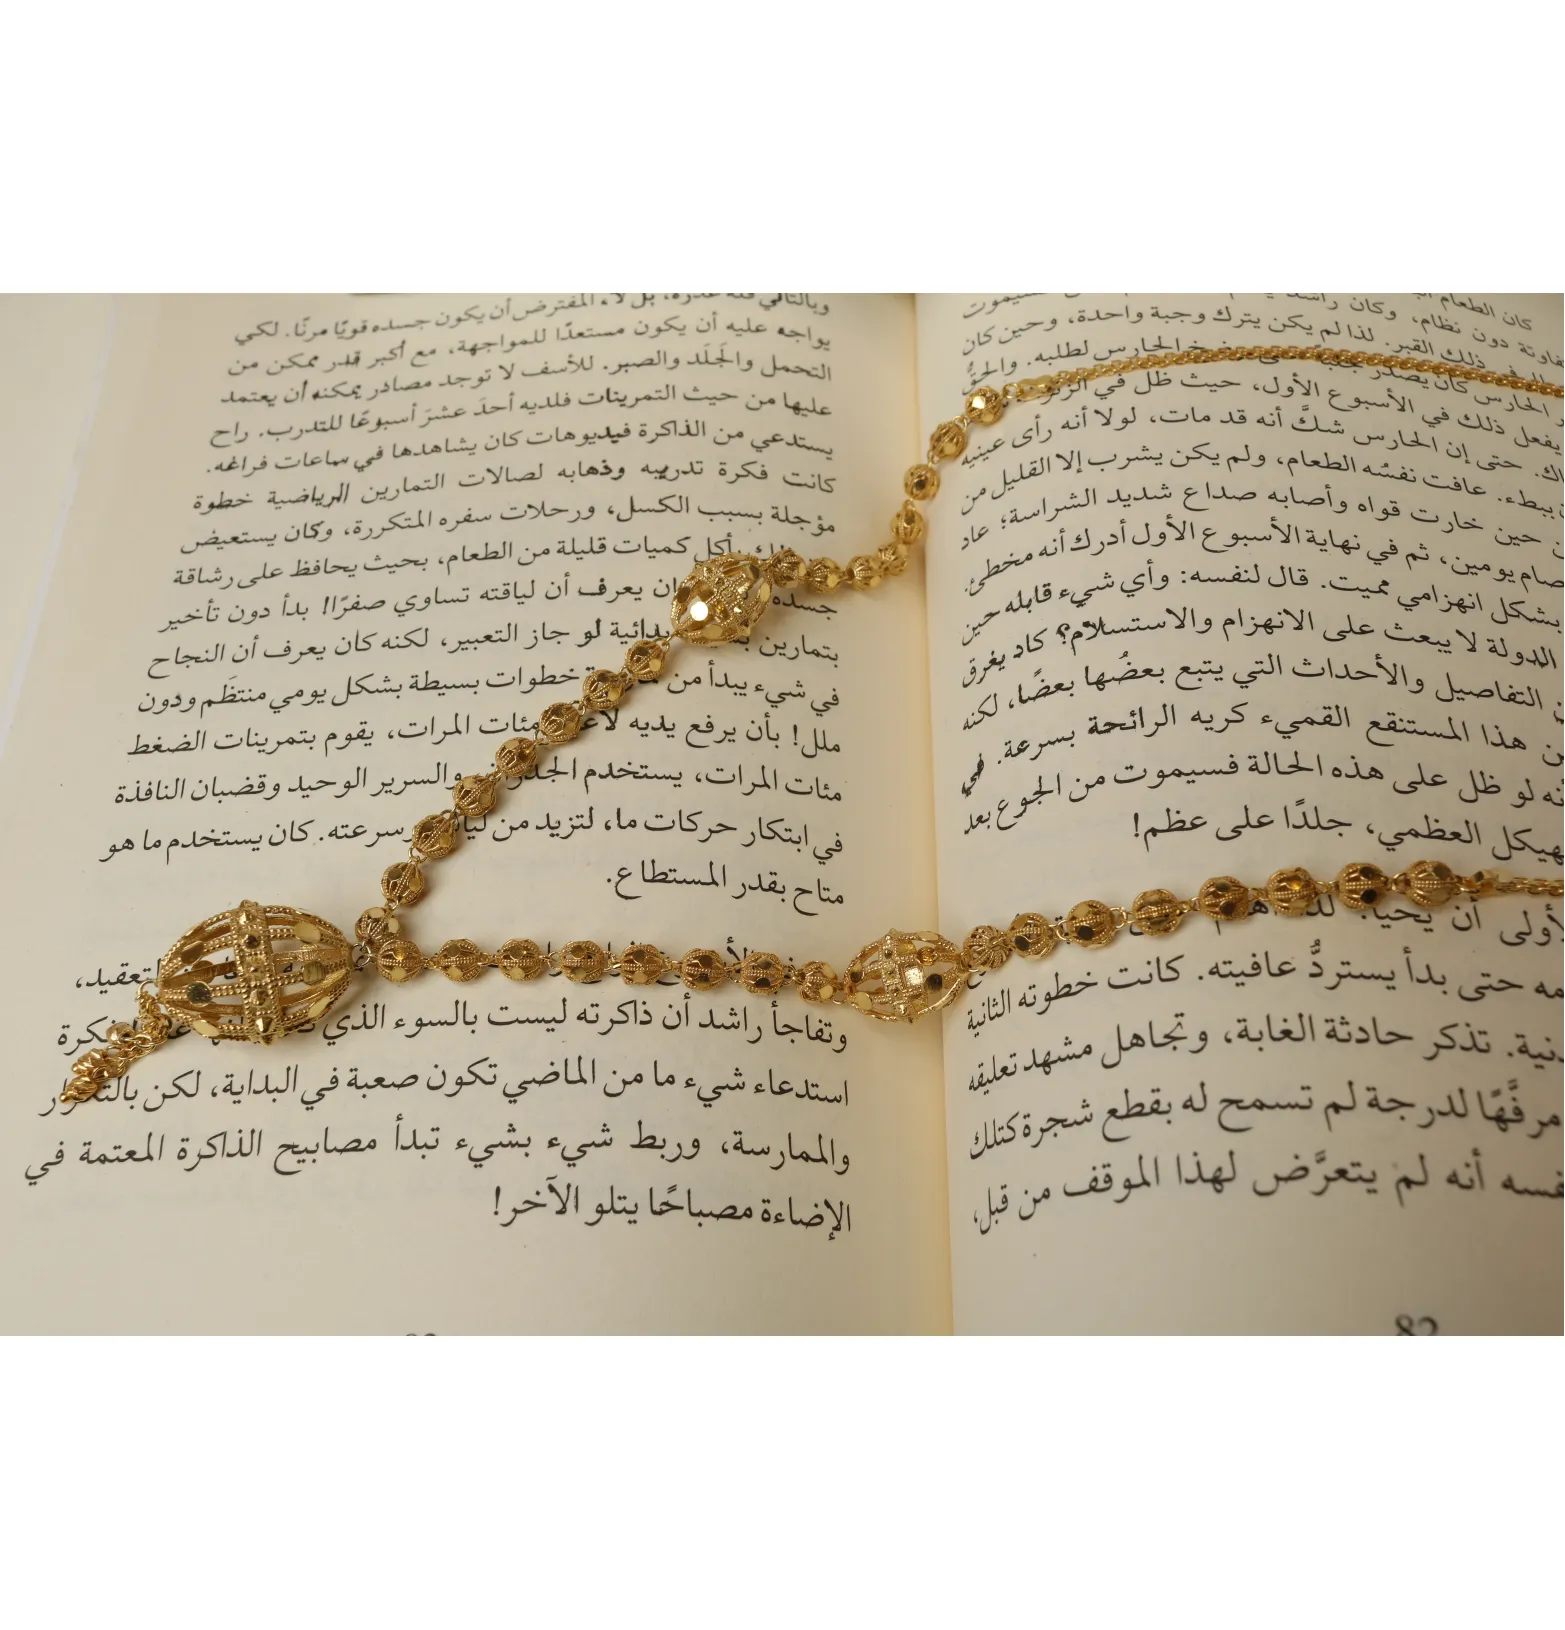 كان الطعام
متفاوتة دون نظام، وكان راشد
في ذلك القبر. لذا لم يكن يترك وجبة واحدة، وحين كان
الحارس كان يصدر الحارس لطلبه. والحقُّ
يفعل ذلك في الأسبوع الأول، حيث ظل في
حتى إن الحارس شكَّ أنه قد مات، لولا أنه رأى عينيه
ببطء. عافت نفسُه الطعام، ولم يكن يشرب إلا القليل من
حين خارت قواه وأصابه صداع شديد الشراسة؛ عاد
صام يومين، ثم في نهاية الأسبوع الأول أدرك أنه مخطئ.
بشكل انهزامي مميت. قال لنفسه: وأي شيء قابله حين
الدولة لا يبعث على الانهزام والاستسلام؟ كاد يغرق
التفاصيل والأحداث التي يتبع بعضُها بعضًا، لكنه
هذا المستنقع القميء كريه الرائحة بسرعة. في
أنه لو ظل على هذه الحالة فسيموت من الجوع بعد
العظمي، جلدًا على عظم!
الأولى أن يحيا.
حتى بدأ يستردُّ عافيته. كانت خطوته الثانية
تذكر حادثة الغابة، وتجاهل مشهد تعليقه
مرفَّهًا لدرجة لم تسمح له بقطع شجرة كتلك
أنه لم يتعرَّض لهذا الموقف من قبل،
82
المفترض أن يكون جسده قويًا مرنًا. لكي
يواجه عليه أن يكون مستعدًا للمواجهة، مع أكبر قدر ممكن من
التحمل والجَلَد والصبر. للأسف لا توجد مصادر يمكنه أن يعتمد
عليها من حيث التمرينات فلديه أحدَ عشرَ أسبوعًا للتدرب. راح
يستدعي من الذاكرة فيديوهات كان يشاهدها في ساعات فراغه.
كانت فكرة تدريبه وذهابه لصالات التمارين الرياضية خطوة
مؤجلة بسبب الكسل، ورحلات سفره المتكررة، وكان يستعيض
كميات قليلة من الطعام، بحيث يحافظ على رشاقة
جسده يعرف أن لياقته تساوي صفرًا! بدأ دون تأخير
بتمارين لو جاز التعبير، لكنه كان يعرف أن النجاح
في شيء يبدأ من خطوات بسيطة بشكل يومي منتظَم ودون
ملل! بأن يرفع يديه مئات المرات، يقوم بتمرينات الضغط
مئات المرات، يستخدم والسرير الوحيد وقضبان النافذة
في ابتكار حركات ما، لتزيد من وسرعته. كان يستخدم ما هو
متاح بقدر المستطاع.
التعقيد،
وتفاجأ راشد أن ذاكرته ليست بالسوء الذي
استدعاء شيء ما من الماضي تكون صعبة في البداية، لكن
والممارسة، وربط شيء بشيء تبدأ مصابيح الذاكرة المعتمة في
الإضاءة مصباحًا يتلو الآخر!